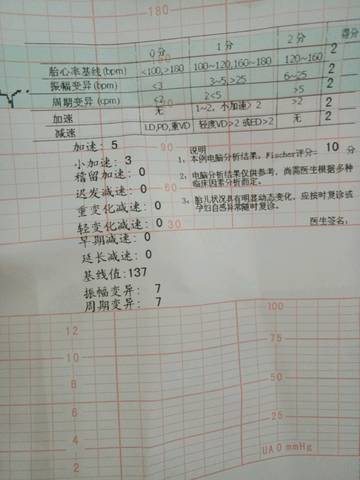 180
0分 1分 2分 得分
胎心率基线(bpm) <100,>180 100~120,160~180 120~160 2
振幅变异(bpm) ≤3 3~5,>25 6~25 2
周期变异(cpm) ≤2 2<5 >5 2
加速 无 1~2, 小加速>2 >2 2
减速 LD,PD,重VD 轻度VD>2 或ED>2 无 2
加速: 5
小加速: 3
稽留加速: 0
迟发减速: 0
重变化减速: 0
轻变化减速: 0
早期减速: 0
延长减速: 0
基线值:137
振幅变异: 7
周期变异: 7
说明
1、本例电脑分析结果, Fischer评分= 10 分
2、电脑分析结果仅供参考, 尚需医生根据多种
临床因素分析而定。
3、胎儿状况具有明显动态变化, 应按时复诊或
孕妇自感异常随时复诊。
医生签名:
90
60
30
12
10
8
6
4
2
100
75
50
25
UA 0 mmHg